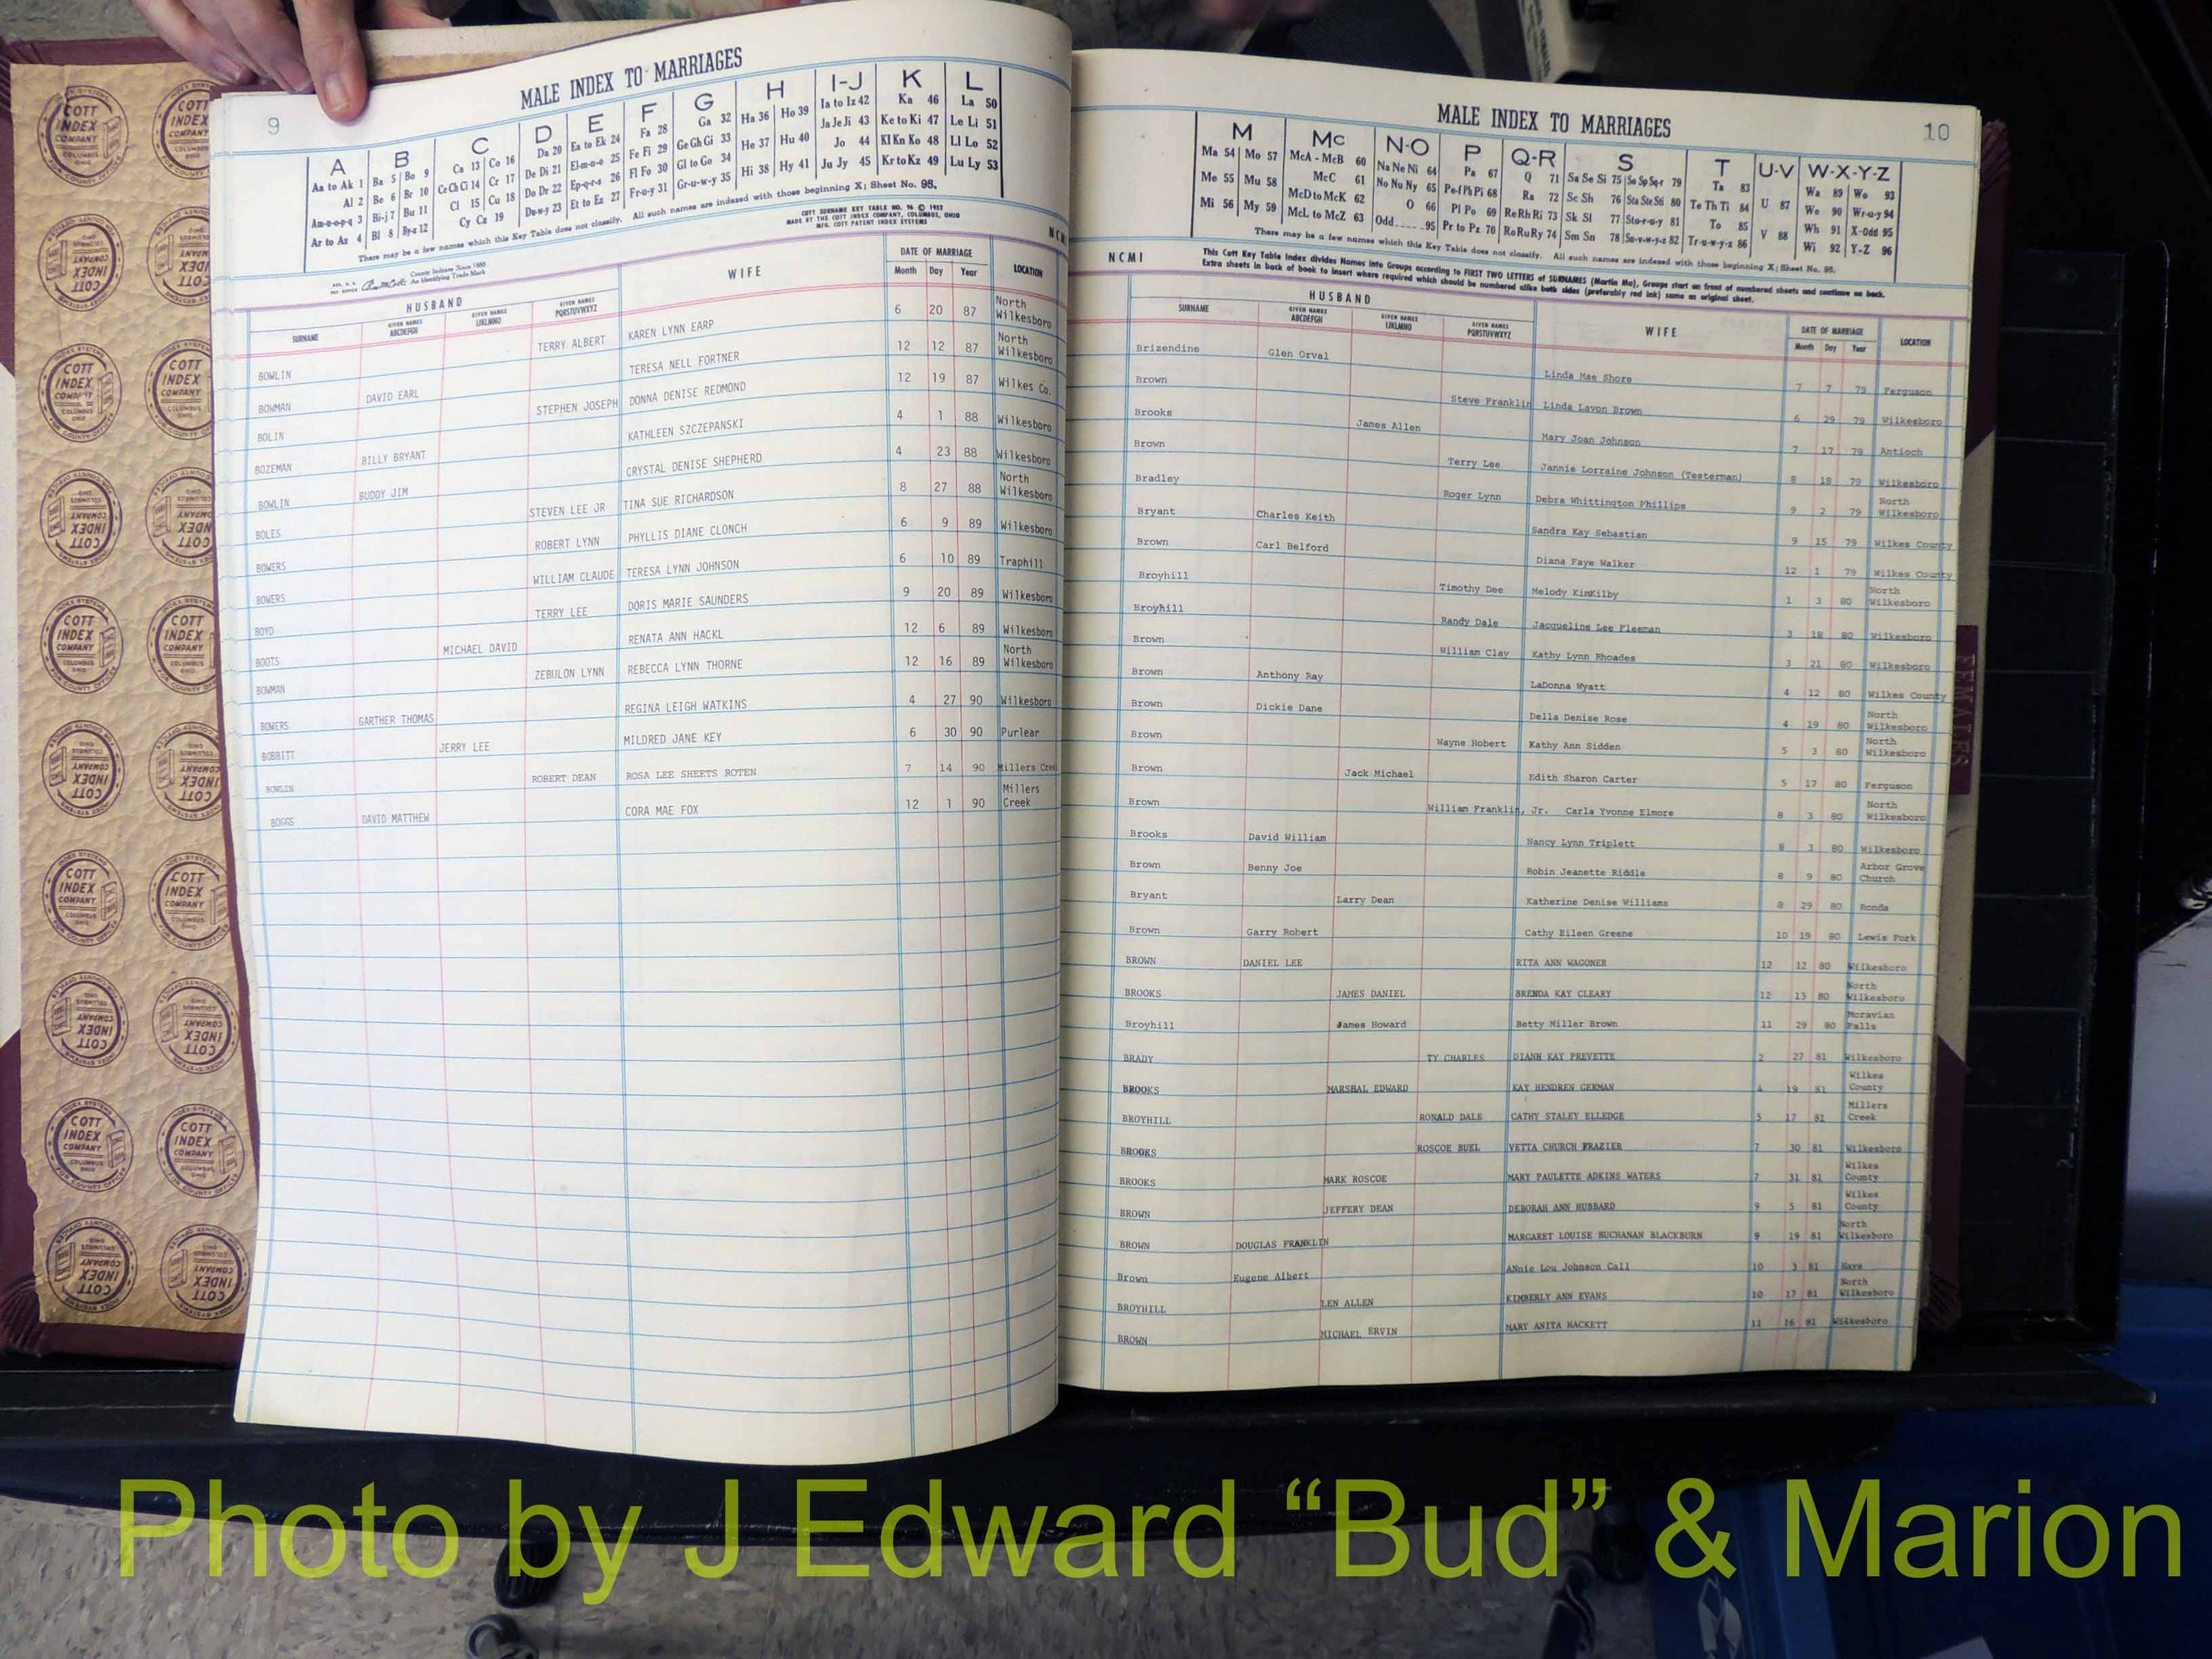 9
MALE INDEX TO MARRIAGES
A B C D E F G H I-J K L
Aa to Ak 1 Ba 5 Bo 9 Ca 13 Co 16 Da 20 Ea to Ek 24 Fa 28 Ga 32 Ha 36 Ho 39 Ia to Iz 42 Ka 46 La 50
Al 2 Be 6 Br 10 Ce Ch Ci 14 Cr 17 De Di 21 El-m-n-o 25 Fe Fi 29 Ge Gh Gi 33 He 37 Hu 40 Ja Je Ji 43 Ke to Ki 47 Le Li 51
Am-n-o-p-q 3 Bi-j 7 Bu 11 Cl 15 Cu 18 Do Dr 22 Ep-q-r-s 26 Fl Fo 30 Gl to Go 34 Hi 38 Hy 41 Jo 44 Kl Kn Ko 48 Ll Lo 52
Ar to Az 4 Bl 8 By-z 12 Cy Cz 19 Du-w-y 23 Et to Ez 27 Fr-u-y 31 Gr-u-w-y 35 Ju Jy 45 Kr to Kz 49 Lu Ly 53
There may be a few names which this Key Table does not classify. All such names are indexed with those beginning X; Sheet No. 95.
COTT SURNAME KEY TABLE NO. 96 © 1952
MADE BY THE COTT INDEX COMPANY, COLUMBUS, OHIO
MFG. COTT PATENT INDEX SYSTEMS
County Indexes Since 1888
An Identifying Trade Mark
HUSBAND WIFE DATE OF MARRIAGE LOCATION
SURNAME GIVEN NAMES ABCDEFGH GIVEN NAMES IJKLMNO GIVEN NAMES PQRSTUVWXYZ Month Day Year
BOWLIN TERRY ALBERT KAREN LYNN EARP 6 20 87 North Wilkesboro
BOWMAN DAVID EARL TERESA NELL FORTNER 12 12 87 North Wilkesboro
BOLIN STEPHEN JOSEPH DONNA DENISE REDMOND 12 19 87 Wilkes Co.
BOZEMAN BILLY BRYANT KATHLEEN SZCZEPANSKI 4 1 88 Wilkesboro
BOWLIN BUDDY JIM CRYSTAL DENISE SHEPHERD 4 23 88 Wilkesboro
BOLES STEVEN LEE JR TINA SUE RICHARDSON 8 27 88 North Wilkesboro
BOWERS ROBERT LYNN PHYLLIS DIANE CLONCH 6 9 89 Wilkesboro
BOWERS WILLIAM CLAUDE TERESA LYNN JOHNSON 6 10 89 Traphill
BOYD TERRY LEE DORIS MARIE SAUNDERS 9 20 89 Wilkesboro
BOOTS MICHAEL DAVID RENATA ANN HACKL 12 6 89 Wilkesboro
BOWMAN ZEBULON LYNN REBECCA LYNN THORNE 12 16 89 North Wilkesboro
BOWERS GARTHER THOMAS REGINA LEIGH WATKINS 4 27 90 Wilkesboro
BOBBITT JERRY LEE MILDRED JANE KEY 6 30 90 Purlear
BOWLIN ROBERT DEAN ROSA LEE SHEETS ROTEN 7 14 90 Millers Creek
BOGGS DAVID MATTHEW CORA MAE FOX 12 1 90 Millers Creek
MALE INDEX TO MARRIAGES
10
M Mc N-O P Q-R S T U-V W-X-Y-Z
Ma 54 Mo 57 McA - McB 60 Na Ne Ni 64 Pa 67 Q 71 Sa Se Si 75 So Sp Sq-r 79 Ta 83 U 87 Wa 89 Wo 93
Me 55 Mu 58 McC 61 No Nu Ny 65 Pe-f Ph Pi 68 Ra 72 Sc Sh 76 Sta Ste Sti 80 Te Th Ti 84 We 90 Wr-u-y 94
Mi 56 My 59 McD to McK 62 O 66 Pl Po 69 Re Rh Ri 73 Sk Sl 77 Sto-r-u-y 81 To 85 V 88 Wh 91 X-Odd 95
McL to McZ 63 Odd.....95 Pr to Pz 70 Ro Ru Ry 74 Sm Sn 78 Su-v-w-y-z 82 Tr-u-w-y-z 86 Wi 92 Y-Z 96
There may be a few names which this Key Table does not classify. All such names are indexed with those beginning X; Sheet No. 95.
NCMI
This Cott Key Table Index divides Names into Groups according to FIRST TWO LETTERS of SURNAMES (Martin Ma), Groups start on front of numbered sheets and continue on back.
Extra sheets in back of book to insert where required which should be numbered alike both sides (preferably red ink) same as original sheet.
HUSBAND WIFE DATE OF MARRIAGE LOCATION
SURNAME GIVEN NAMES ABCDEFGH GIVEN NAMES IJKLMNO GIVEN NAMES PQRSTUVWXYZ Month Day Year
Brizendine Glen Orval Linda Mae Shore 7 7 79 Ferguson
Brown Steve Franklin Linda Lavon Brown 6 29 79 Wilkesboro
Brooks James Allen Mary Joan Johnson 7 17 79 Antioch
Brown Terry Lee Jannie Lorraine Johnson (Testerman) 8 18 79 Wilkesboro
Bradley Roger Lynn Debra Whittington Phillips 9 2 79 North Wilkesboro
Bryant Charles Keith Sandra Kay Sebastian 9 15 79 Wilkes County
Brown Carl Belford Diana Faye Walker 12 1 79 Wilkes County
Broyhill Timothy Dee Melody KimKilby 1 3 80 North Wilkesboro
Broyhill Randy Dale Jacqueline Lee Fleeman 3 18 80 Wilkesboro
Brown William Clay Kathy Lynn Rhoades 3 21 80 Wilkesboro
Brown Anthony Ray LaDonna Wyatt 4 12 80 Wilkes County
Brown Dickie Dane Della Denise Rose 4 19 80 North Wilkesboro
Brown Wayne Hobert Kathy Ann Sidden 5 3 80 North Wilkesboro
Brown Jack Michael Edith Sharon Carter 5 17 80 Ferguson
Brown William Franklin, Jr. Carla Yvonne Elmore 8 3 80 North Wilkesboro
Brooks David William Nancy Lynn Triplett 8 3 80 Wilkesboro
Brown Benny Joe Robin Jeanette Riddle 8 9 80 Arbor Grove Church
Bryant Larry Dean Katherine Denise Williams 8 29 80 Ronda
Brown Garry Robert Cathy Eileen Greene 10 19 80 Lewis Fork
BROWN DANIEL LEE RITA ANN WAGONER 12 12 80 Wilkesboro
BROOKS JAMES DANIEL BRENDA KAY CLEARY 12 13 80 North Wilkesboro
Broyhill James Howard Betty Miller Brown 11 29 80 Moravian Falls
BRADY TY CHARLES DIANH KAY PREVETTE 2 27 81 Wilkesboro
BROOKS MARSHAL EDWARD KAY HENDREN GERMAN 4 19 81 Wilkes County
BROYHILL RONALD DALE CATHY STALEY ELLEDGE 5 17 81 Millers Creek
BROOKS ROSCOE BUEL VETTA CHURCH FRAZIER 7 30 81 Wilkesboro
BROOKS MARK ROSCOE MARY PAULETTE ADKINS WATERS 7 31 81 Wilkes County
BROWN JEFFERY DEAN DEBORAH ANN HUBBARD 9 5 81 Wilkes County
BROWN DOUGLAS FRANKLIN MARGARET LOUISE BUCHANAN BLACKBURN 9 19 81 North Wilkesboro
Brown Eugene Albert ANnie Lou Johnson Call 10 3 81 Hays
BROYHILL LEN ALLEN KIMBERLY ANN EVANS 10 17 81 North Wilkesboro
BROWN MICHAEL ERVIN MARY ANITA HACKETT 11 26 81 Wilkesboro
Photo by J Edward “Bud” & Marion